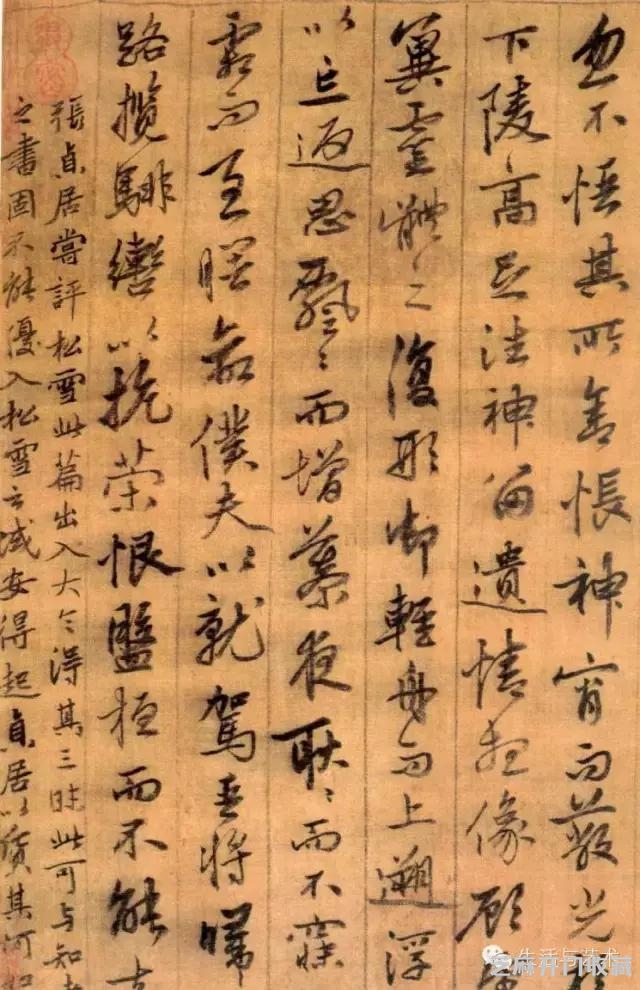 忽不悟其所舍悵神宵而蔽光
下陵高足往神留遺情想像顧
冀靈體之復形御輕舟而上遡浮
以忘返思飄〻而增慕夜耿〻而不寐
霜而至曙命僕夫以就駕吾將歸
路攬騑轡以抗策恨盤桓而不能去
張貞居嘗評松雪此篇出入大令得其三昧此可与知者
之書固不能優入松雪之域安得起貞居以質其
生活与艺术
芝麻开门收藏